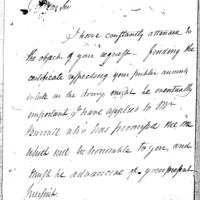 Dear Sir
I have constantly attended to
the object of your request. finding the
certificate respecting your public
in the Army might be eventually
important, I have applied to Mr
Burrall who has promised me one
which will be honorable to you, and
might be advancive of your present
pursuit.